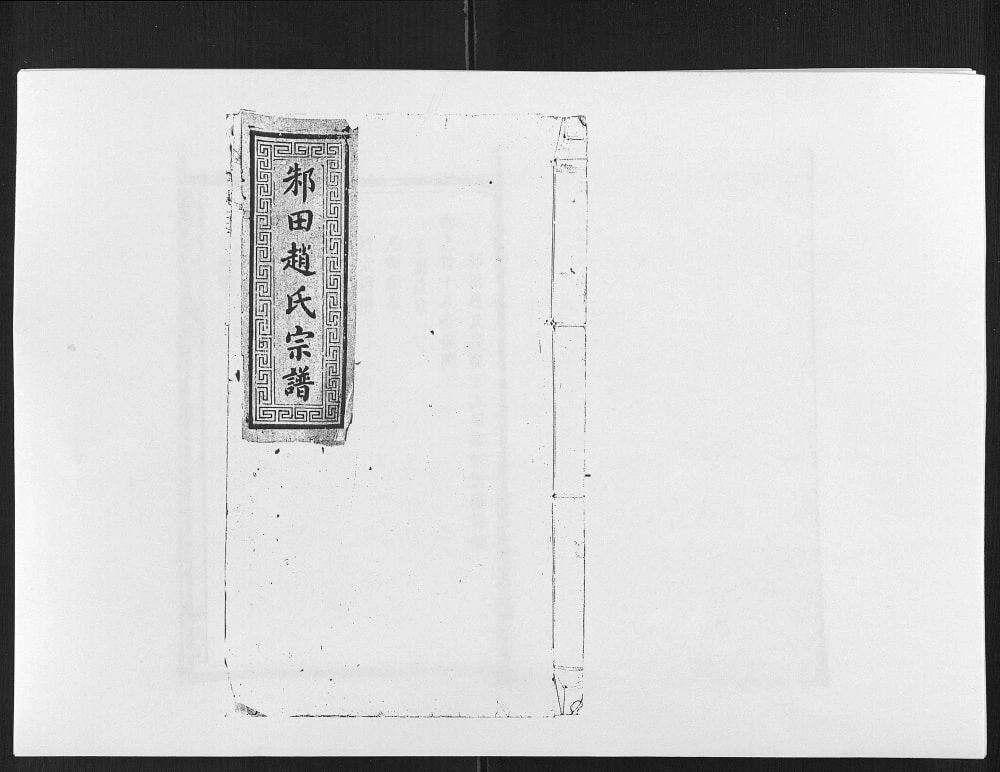 邾田趙氏宗譜